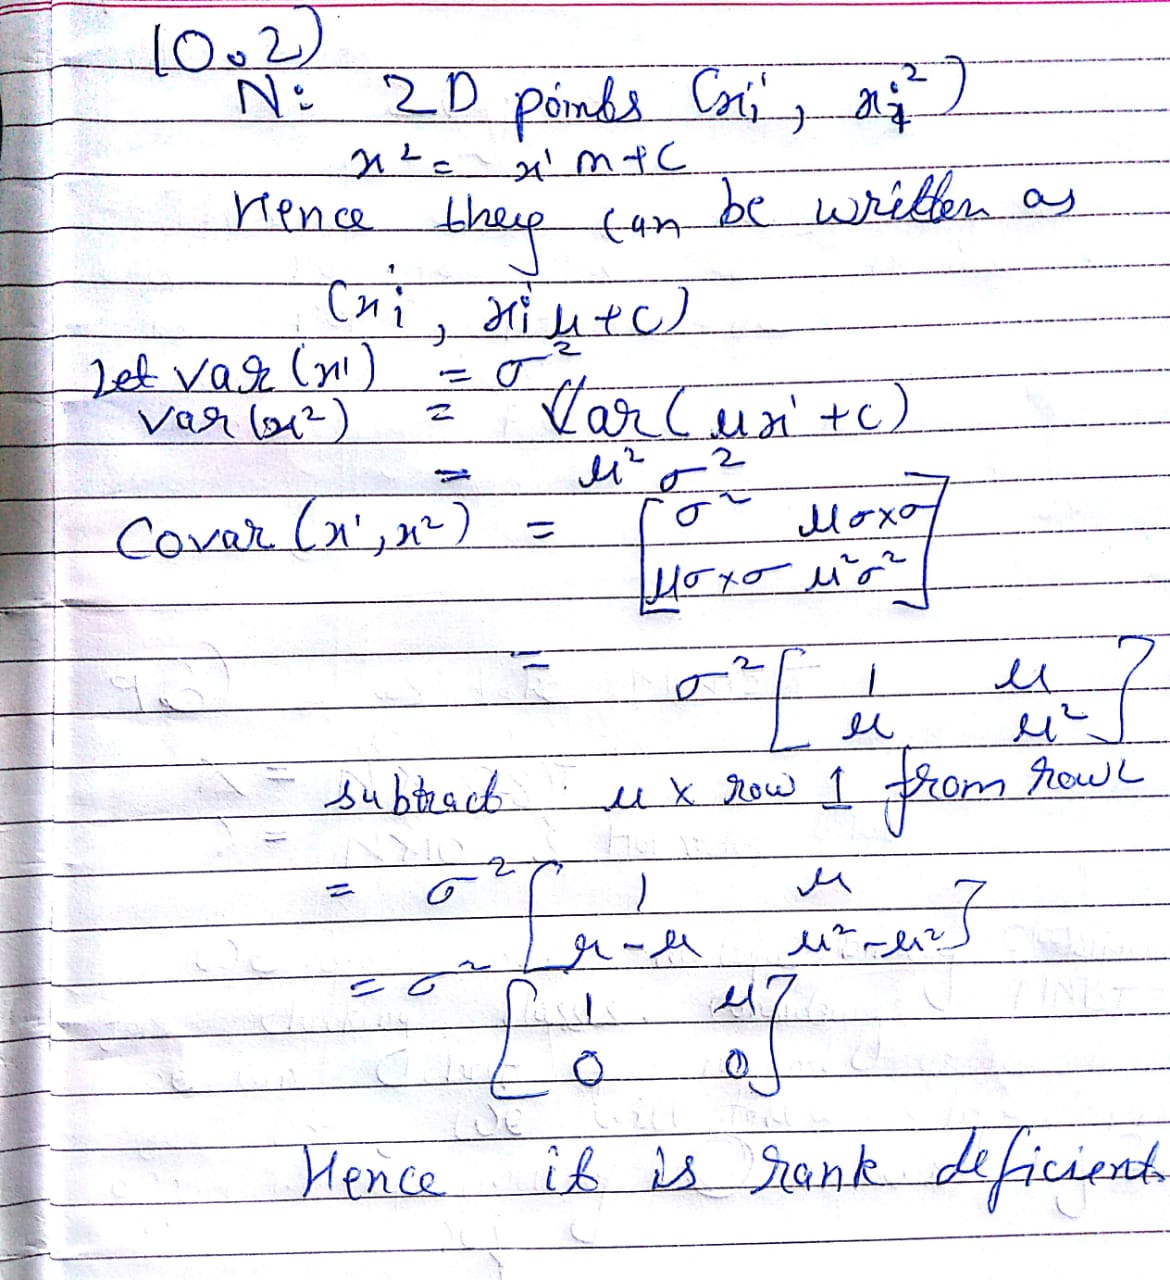 (0.2)
N: 2D points (xi¹, xi²)
x² = x¹ m + c
Hence they can be written as
(xi¹, xi¹ μ + c)
Let var (x¹) = σ²
var (x²) = Var ( μx¹ + c)
= μ² σ²
Covar (x¹, x²) = [σ² μσxσ
μσxσ μ²σ²]
= σ² [1 μ
μ μ²]
subtract μ x row 1 from row 2
= σ² [1 μ
μ-μ μ²-μ²]
= σ²
[1 μ
0 0]
Hence it is rank deficient.